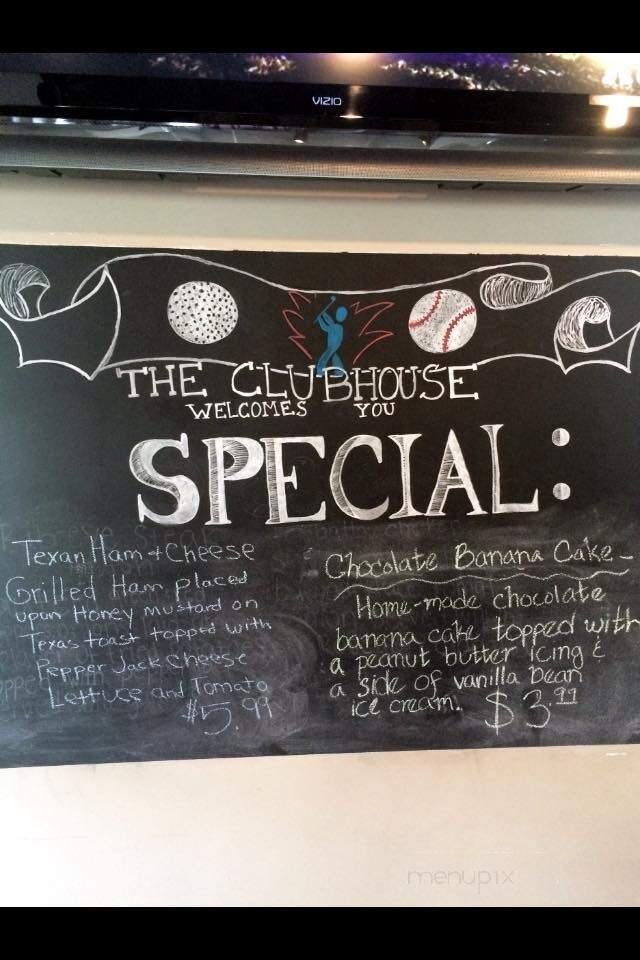 VIZIO
THE CLUBHOUSE
WELCOMES YOU
SPECIAL:
Texan Ham + Cheese
Grilled Ham placed
upon Honey mustard on
Texas toast topped with
Pepper Jack Cheese
Lettuce and Tomato
$5.99
Chocolate Banana Cake-
Home-made chocolate
banana cake topped with
a peanut butter icing &
a side of vanilla bean
ice cream. $3.99
menupix